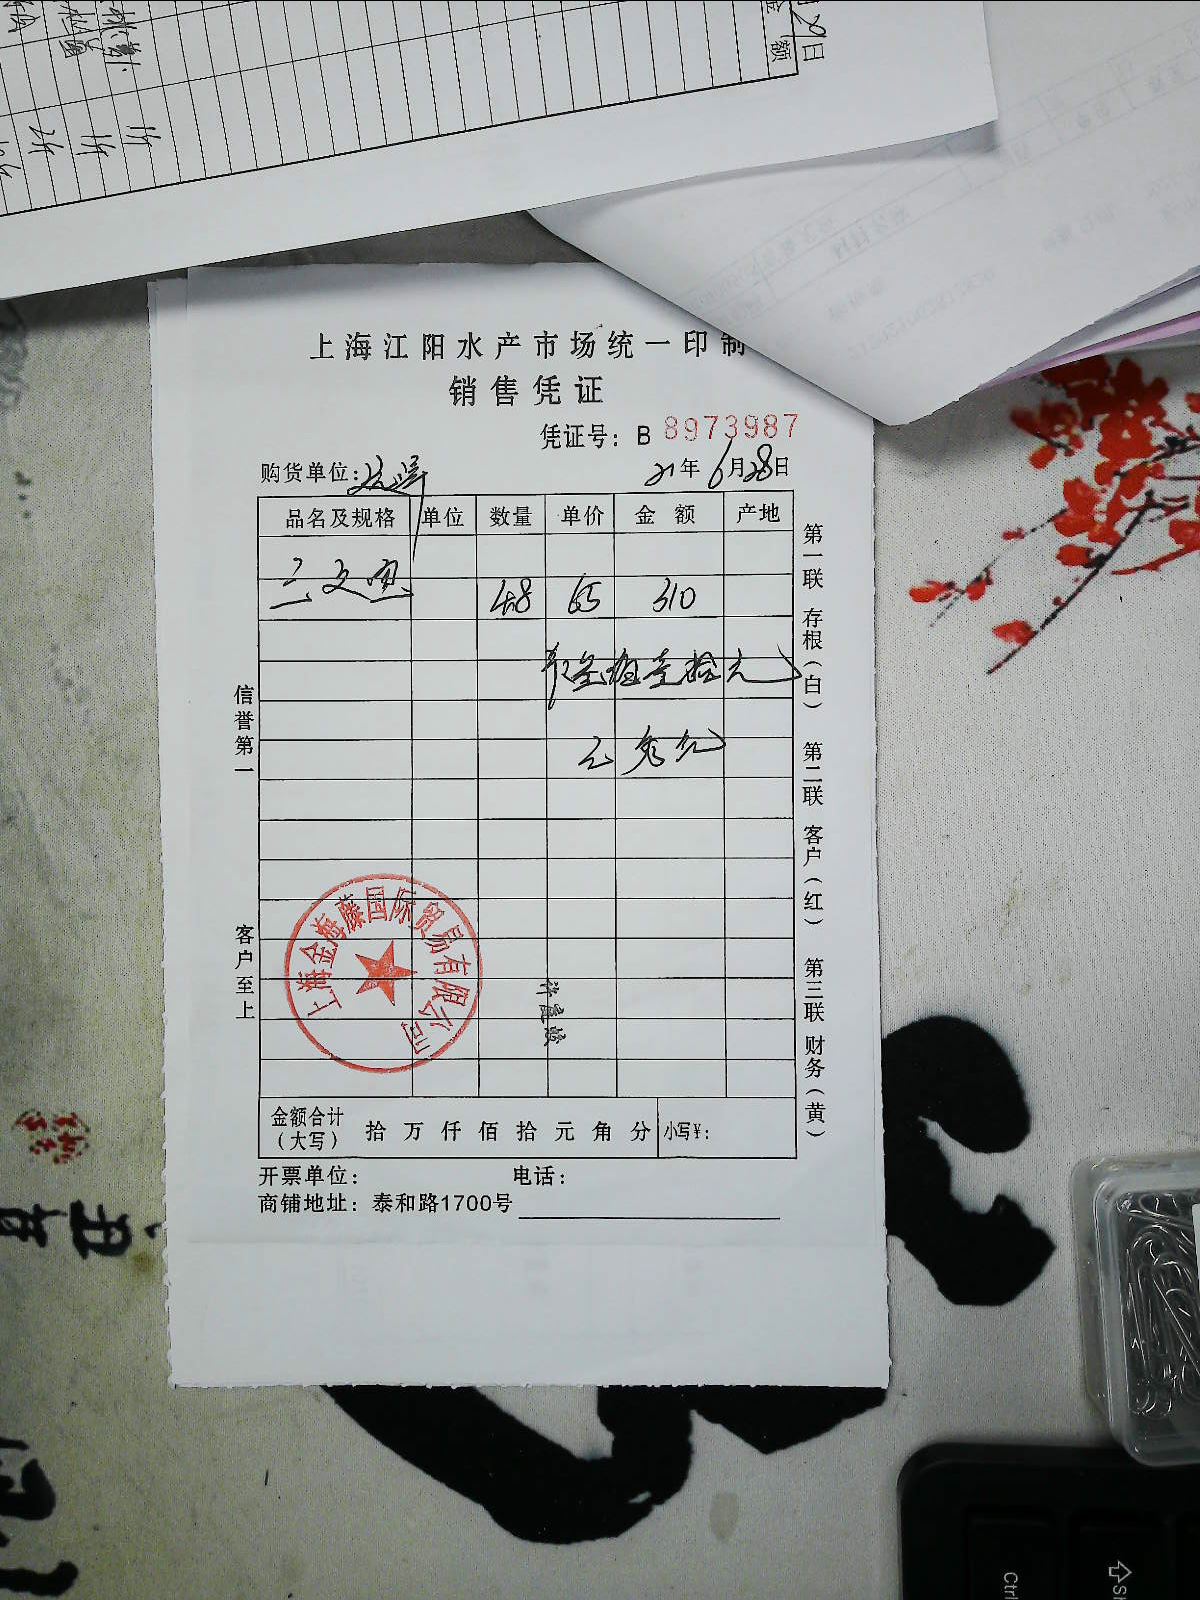 日
额
上海江阳水产市场统一印制
销售凭证
凭证号：B 8973987
购货单位：
21年6月28日
品名及规格 单位 数量 单价 金 额 产地
三文鱼 48 65 310
叁佰壹拾元
信誉第一
客户至上
第一联 存根（白） 第二联 客户（红） 第三联 财务（黄）
上海金海藤国际贸易有限公司
金额合计（大写） 拾 万 仟 佰 拾 元 角 分 小写￥：
开票单位： 电话：
商铺地址：泰和路1700号
丑
Ctrl